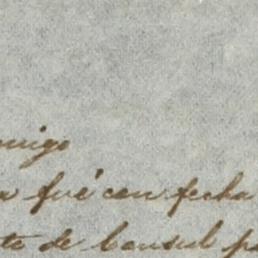 amigo
fué con fecha
de Consul